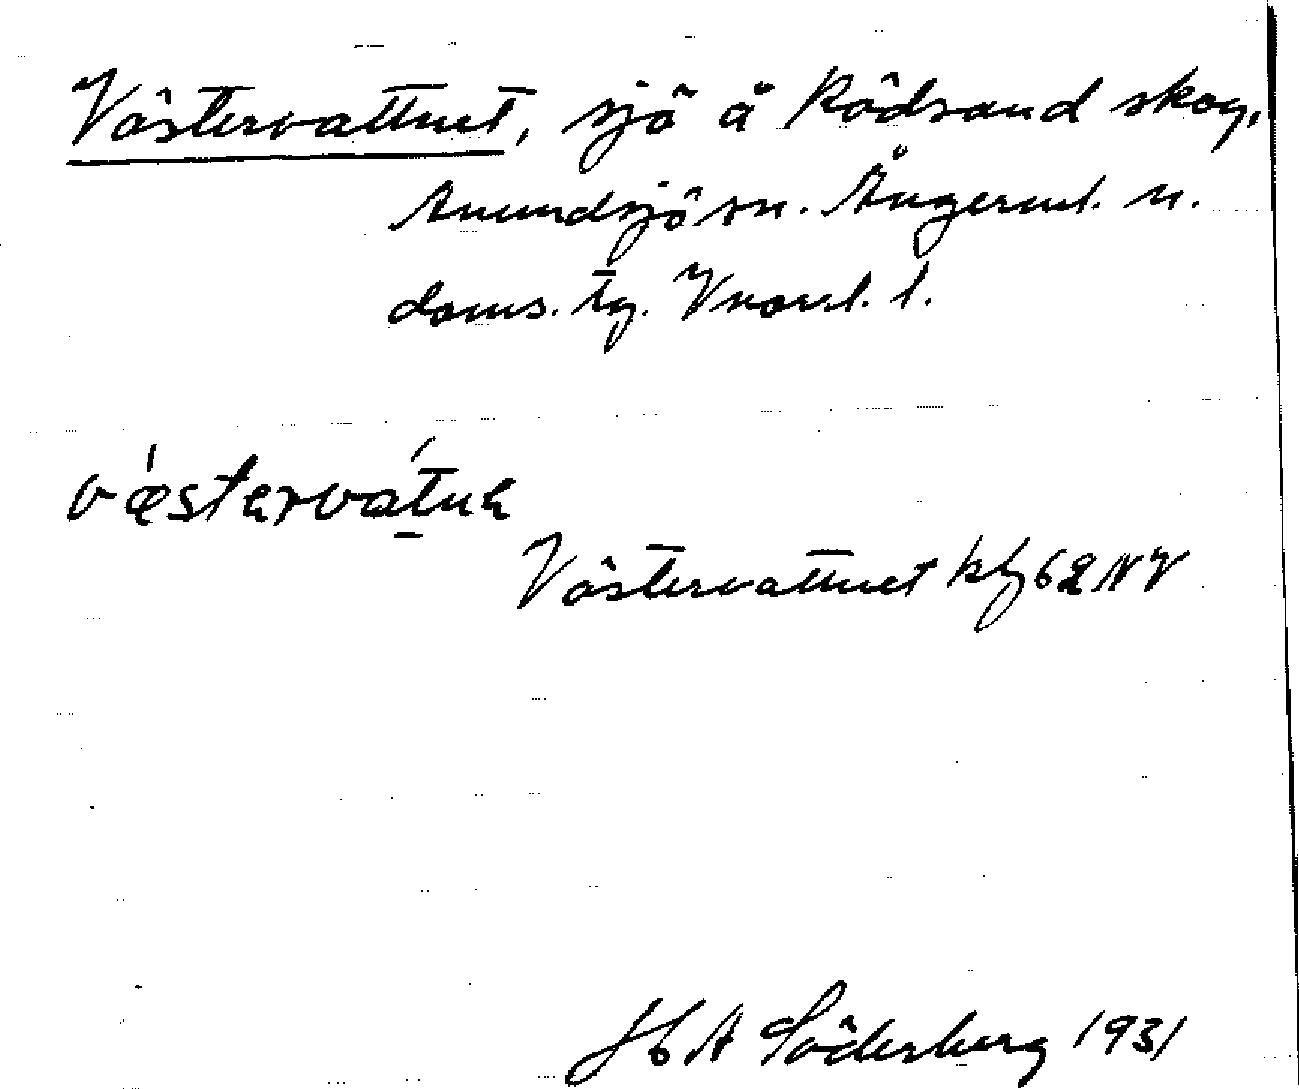 Västervattnet, sjö å Rödsand skog,
Anundsjö sn. Ångerml. n.
doms. tg. Vnorrl. l.
væstərvatnə
Västervattnet kbl 62 NV
H A Söderberg 1931